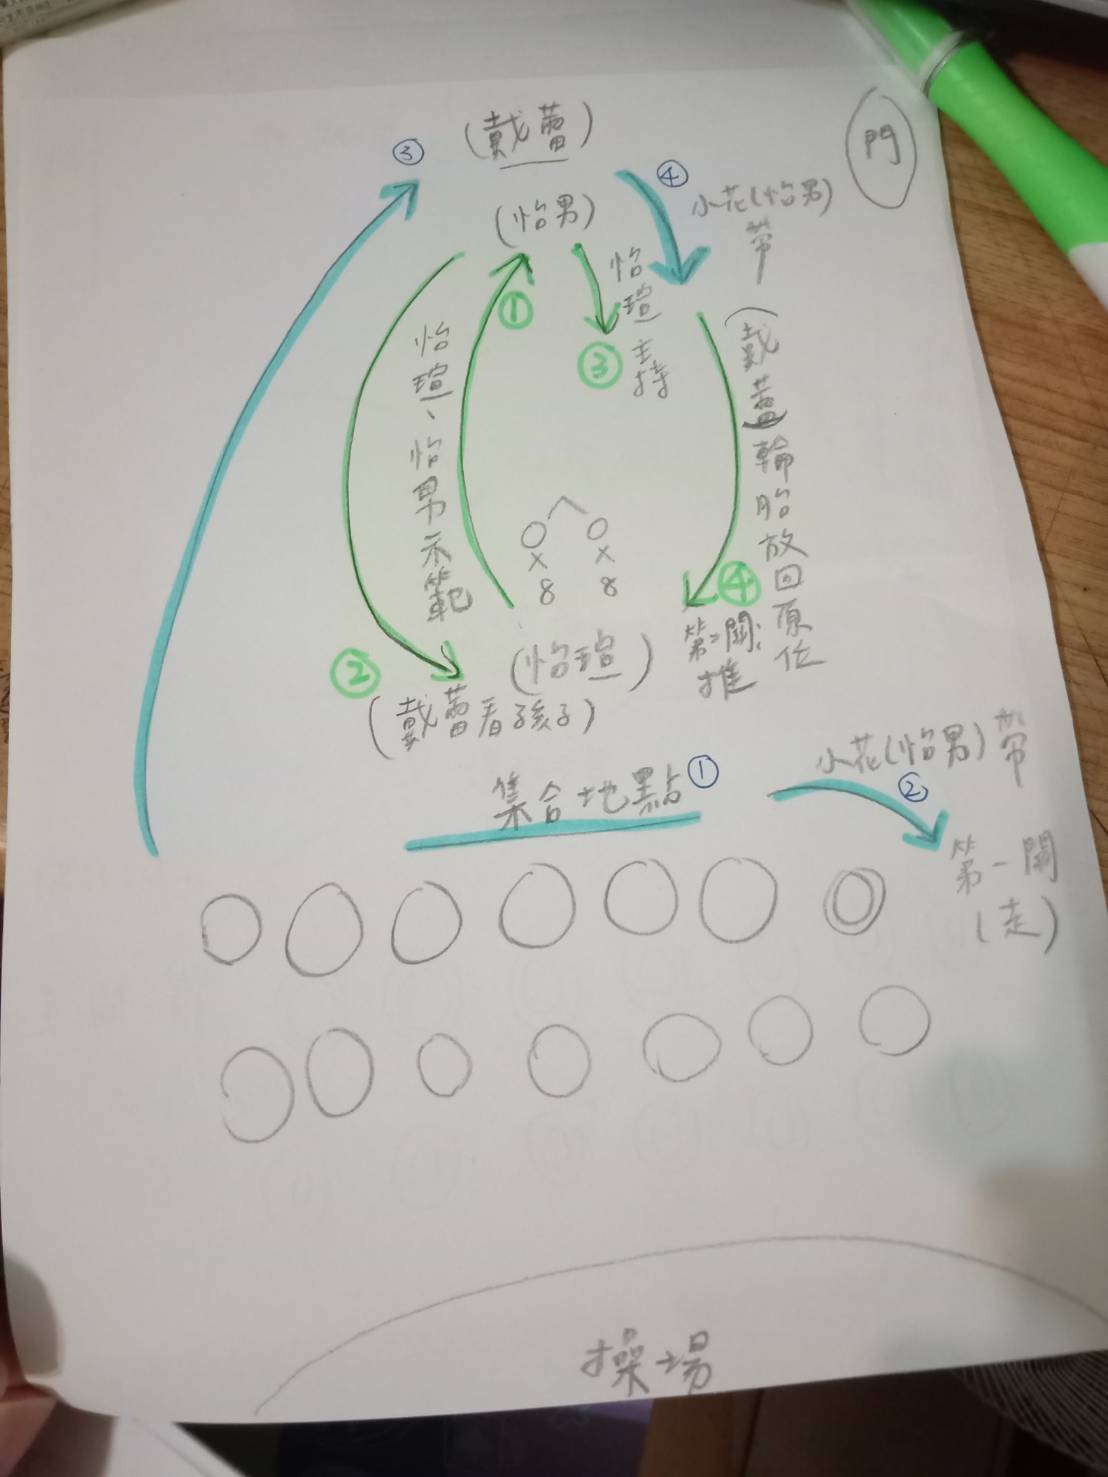 ③
(戴蕾)
門
④
小花(怡男)
帶
(怡男)
怡瑄主持
①
③
怡瑄、怡男示範
(戴蕾)輪胎放回原位
× ×
8 8
④
②
(怡瑄)
第二關:
推
(戴蕾看孩子)
集合地點①
小花(怡男)帶
②
第一關
(走)
操場